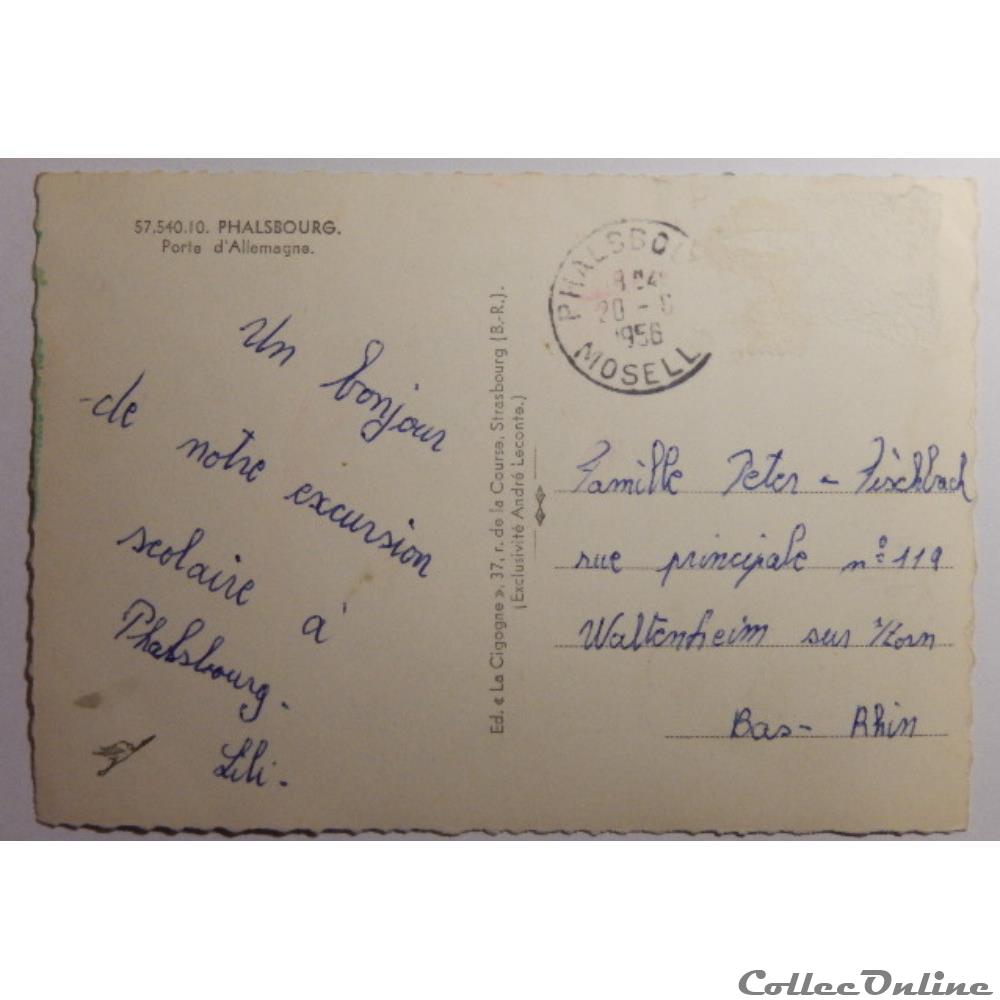 57.540.10. PHALSBOURG.
Porte d'Allemagne.
Un bonjour
de notre excursion
scolaire à
Phalsbourg.
Lili.
Ed. « La Cigogne », 37, r. de la Course, Strasbourg (B.-R.).
(Exclusivité André Leconte.)
PHALSBOU
20 -
1956
MOSELL
Famille Peter - Fischbach
rue principale n° 119
Waltenheim sur Zorn
Bas-Rhin
CollecOnline